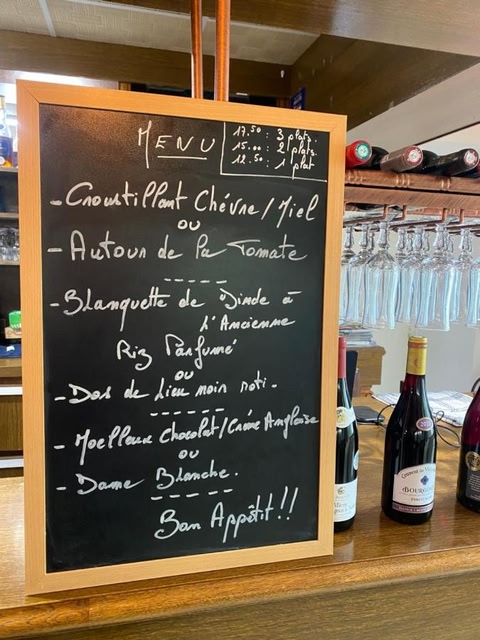 MENU
17.50 : 3 plats.
15.00 : 2 plats
12.50 : 1 plat
- Croustillant Chévre / Miel
ou
- Autour de la Tomate
- Blanquette de Dinde à
l'Ancienne
Riz Parfumé
ou
- Dos de Lieu noir roti -
- Moelleux Chocolat / Crème Anglaise
ou
- Dame Blanche.
Bon Appétit !!
BOURGOGNE